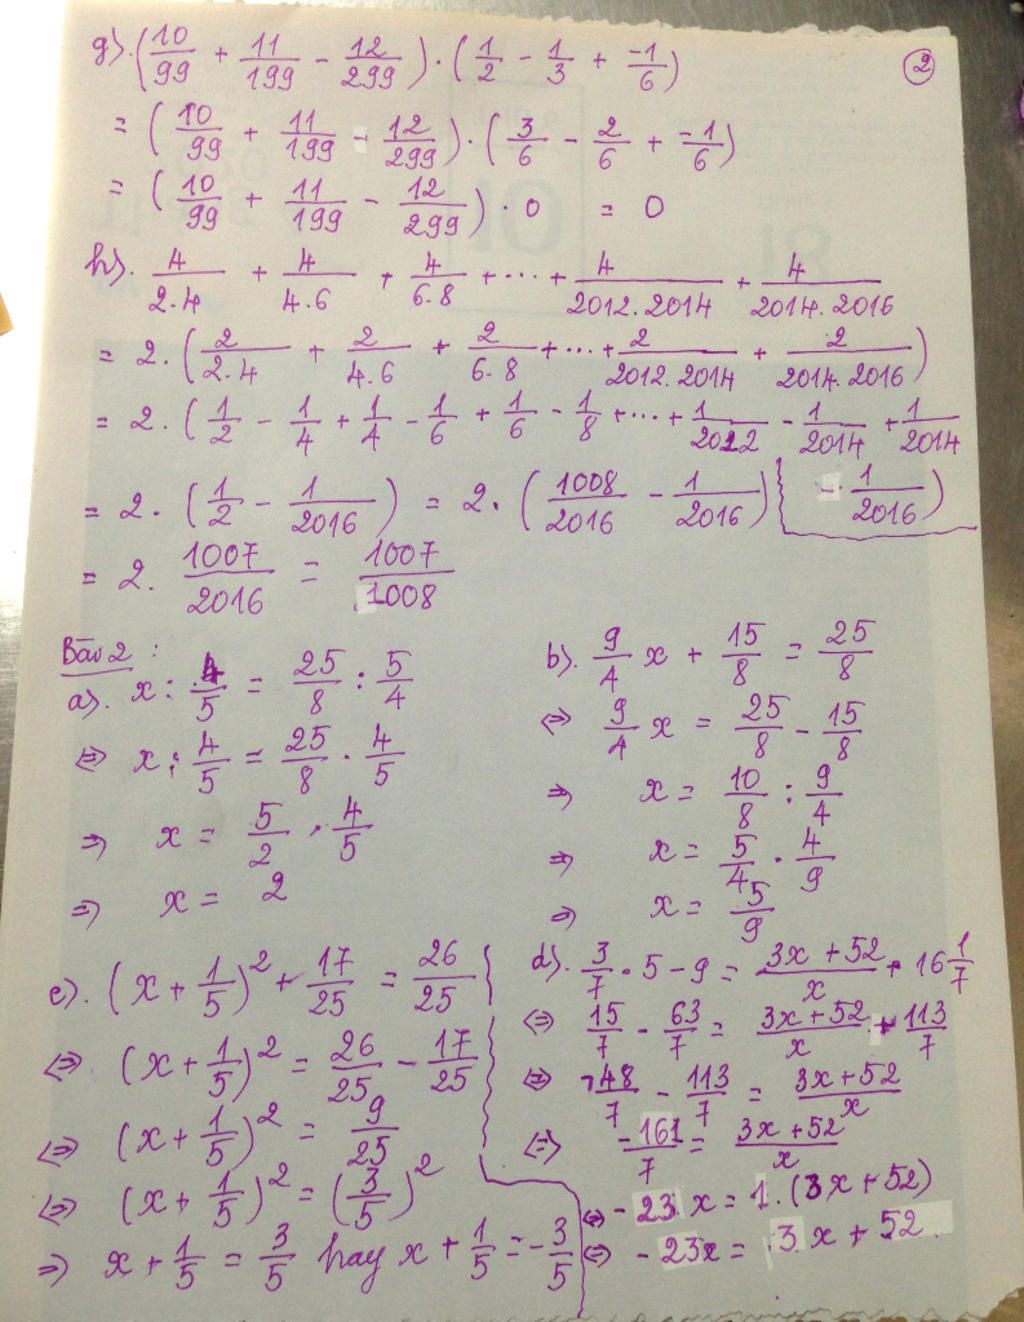 ②
g). (10/99 + 11/199 - 12/299) . (1/2 - 1/3 + -1/6)
= (10/99 + 11/199 - 12/299) . (3/6 - 2/6 + -1/6)
= (10/99 + 11/199 - 12/299) . 0 = 0
h). 4/2.4 + 4/4.6 + 4/6.8 + ... + 4/2012.2014 + 4/2014.2016
= 2. (2/2.4 + 2/4.6 + 2/6.8 + ... + 2/2012.2014 + 2/2014.2016)
= 2. (1/2 - 1/4 + 1/4 - 1/6 + 1/6 - 1/8 + ... + 1/2012 - 1/2014 + 1/2014
- 1/2016)
= 2. (1/2 - 1/2016) = 2. (1008/2016 - 1/2016)
= 2. 1007/2016 = 1007/1008
Bài 2 :
a). x : 4/5 = 25/8 : 5/4
⇔ x : 4/5 = 25/8 . 4/5
⇒ x = 5/2 . 4/5
⇒ x = 2
b). 9/4 x + 15/8 = 25/8
⇔ 9/4 x = 25/8 - 15/8
⇒ x = 10/8 : 9/4
⇒ x = 5/4 . 4/9
⇒ x = 5/9
c). (x + 1/5)² + 17/25 = 26/25
⇔ (x + 1/5)² = 26/25 - 17/25
⇔ (x + 1/5)² = 9/25
⇔ (x + 1/5)² = (3/5)²
⇒ x + 1/5 = 3/5 hay x + 1/5 = -3/5
d). 3/7 . 5 - 9 = 3x + 52/x + 16 1/7
⇔ 15/7 - 63/7 = 3x + 52/x + 113/7
⇔ -48/7 - 113/7 = 3x + 52/x
⇔ -161/7 = 3x + 52/x
⇔ -23 x = 1. (3x + 52)
⇔ -23x = 3x + 52